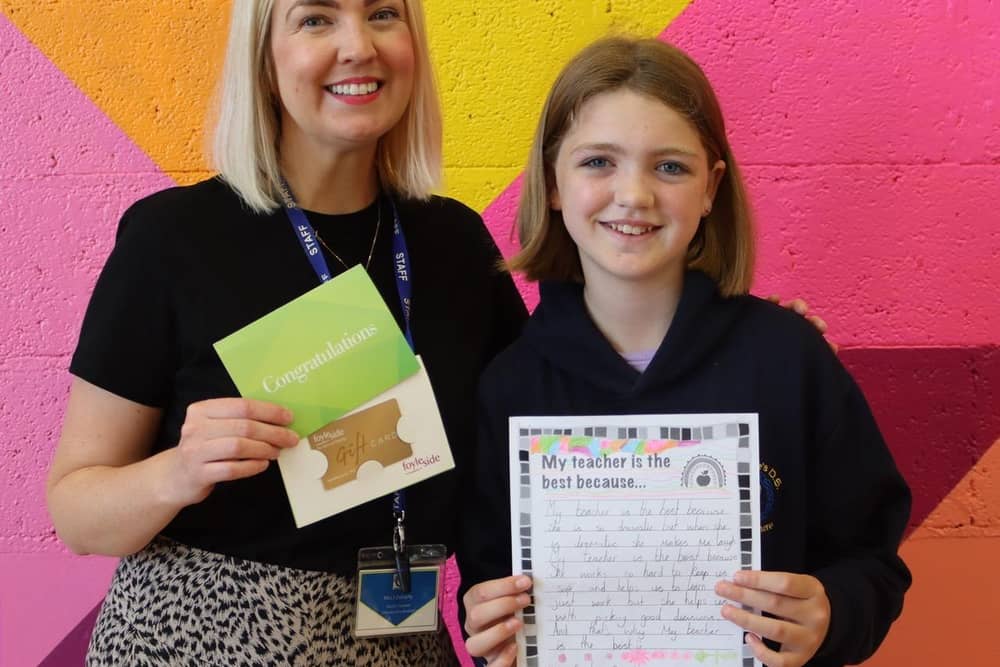 STAFF
STAFF
Congratulations
foyleside
Gift CARD
foyleside
My teacher is the
best because...
My teacher is the best because
she is so dramatic but when she
is dramatic she makes me laugh
My teacher is the best because
she works so hard to keep us
safe and helps us to learn
just work but she helps us
with picking good decisions
And that's why My teacher
is the best
's D.S.